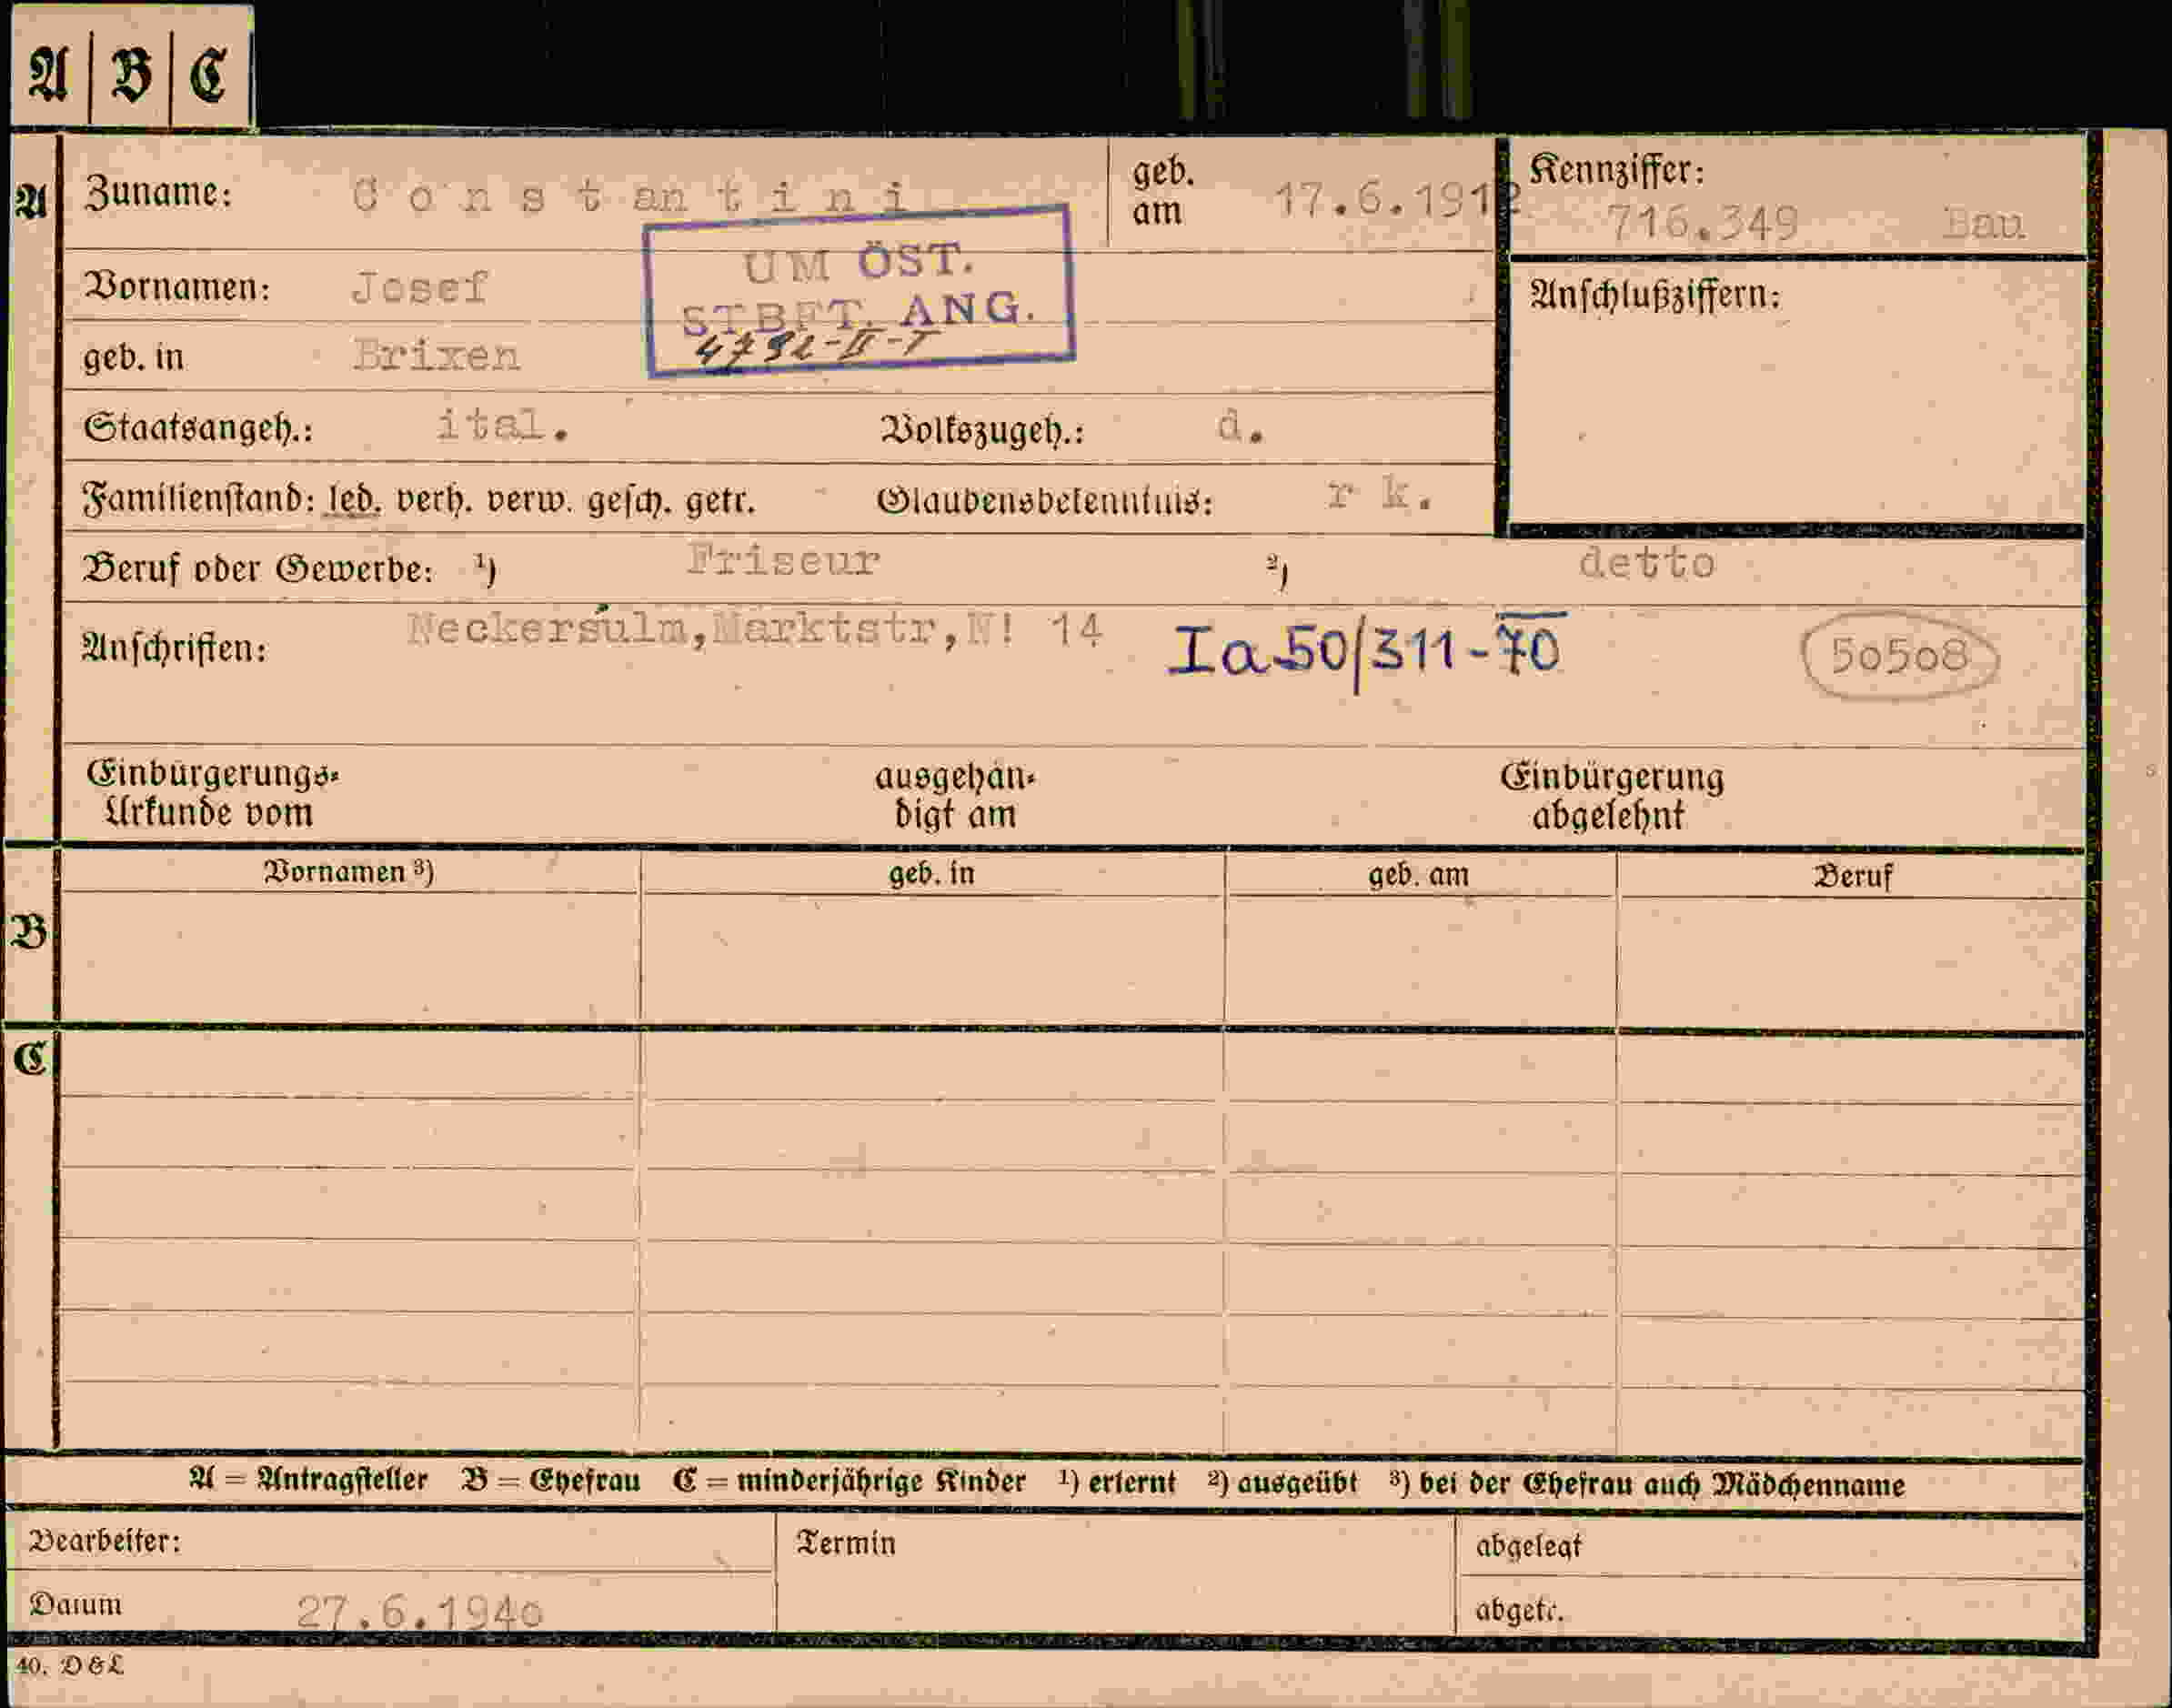 A B C
A Zuname: Constantini geb. am 17.6.1912 Kennziffer: 716.349 Bau
UM ÖST.
STBFT. ANG.
Vornamen: Josef Anschlußziffern:
geb. in Brixen
Staatsangeh.: ital. Volkszugeh.: d.
Familienstand: led. verh. verw. gesch. getr. Glaubensbekenntnis: r k.
Beruf oder Gewerbe: ¹) Friseur ²) detto
Anschriften: Neckersulm,Marktstr,N! 14 Ia50/311-70 50508
Einbürgerungs-
Urkunde vom
ausgehän-
digt am
Einbürgerung
abgelehnt
Vornamen ³) geb. in geb. am Beruf
B
C
A = Antragsteller B = Ehefrau C = minderjährige Kinder ¹) erlernt ²) ausgeübt ³) bei der Ehefrau auch Mädchenname
Bearbeiter: Termin abgelegt
Datum 27.6.1940 abgetr.
40. D&L